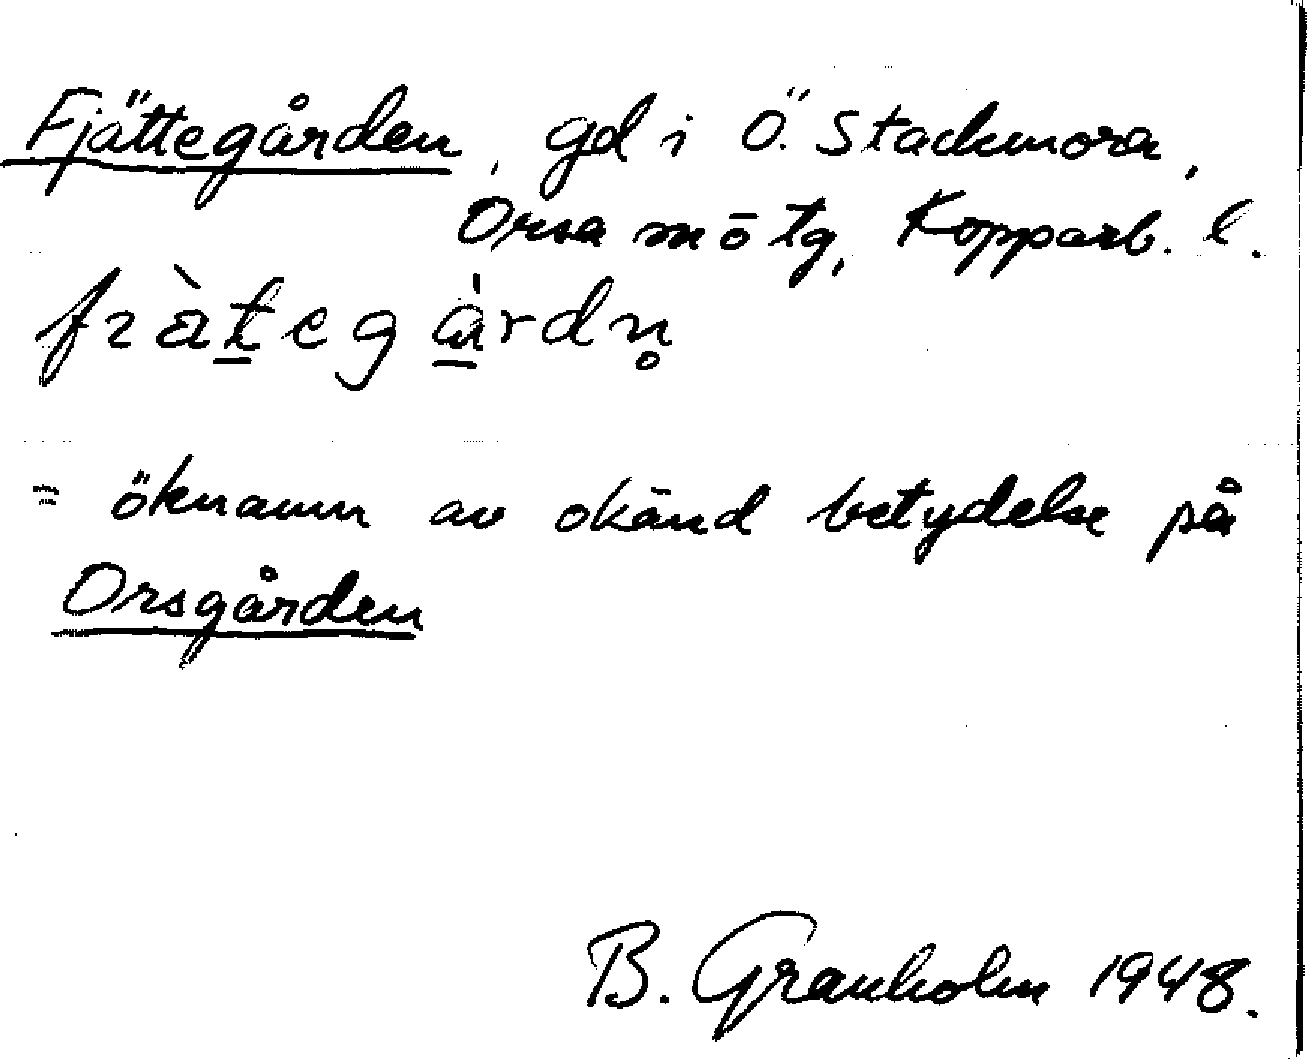 Fjättegården, gd i Ö. Stackmora,
Orsa mötg, Kopparb. l.
= öknamn av okänd betydelse på
Orsgården
B. Granholm 1948.